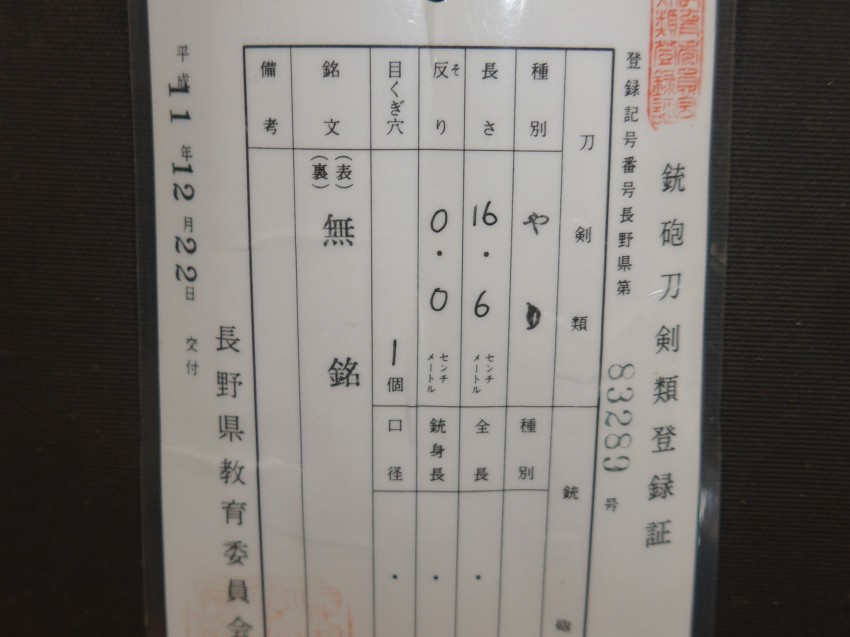 銃砲刀剣類登録証
登録記号番号長野県第 83289 号
刀剣類
種別 やり
長さ 16.6 センチメートル
反り そ 0.0 センチメートル
目くぎ穴 1個
銘文 (表) (裏) 無銘
備考
銃砲
種別
全長 .
銃身長 .
口径 .
平成11年12月22日 交付
長野県教育委員会